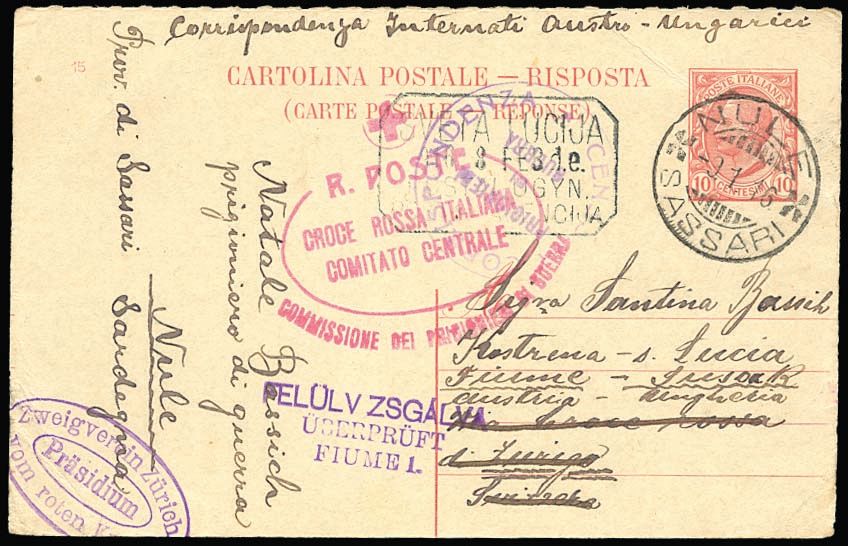 Corrispondenza Internati Austro-Ungarici
15
CARTOLINA POSTALE — RISPOSTA
(CARTE POSTALE — RÉPONSE)
POSTE ITALIANE
10 CENTESIMI 10
NULE
SASSARI
LUCIJA
R. POSTE
CROCE ROSSA ITALIANA
COMITATO CENTRALE
COMMISSIONE DEI PRIGIONIERI DI GUERRA
Natale Bassich
prigioniero di guerra
Nule
Prov. di Sassari Sardegna
Santina Bassich
Kostrena - s. Lucia
Fiume - Susak
Austria - Ungheria
Via Croce rossa
di Zurigo
Svizzera
FELÜLV ZSGÁLVA
ÜBERPRÜFT
FIUME 1.
Zweigverein Zürich
Präsidium
vom roten